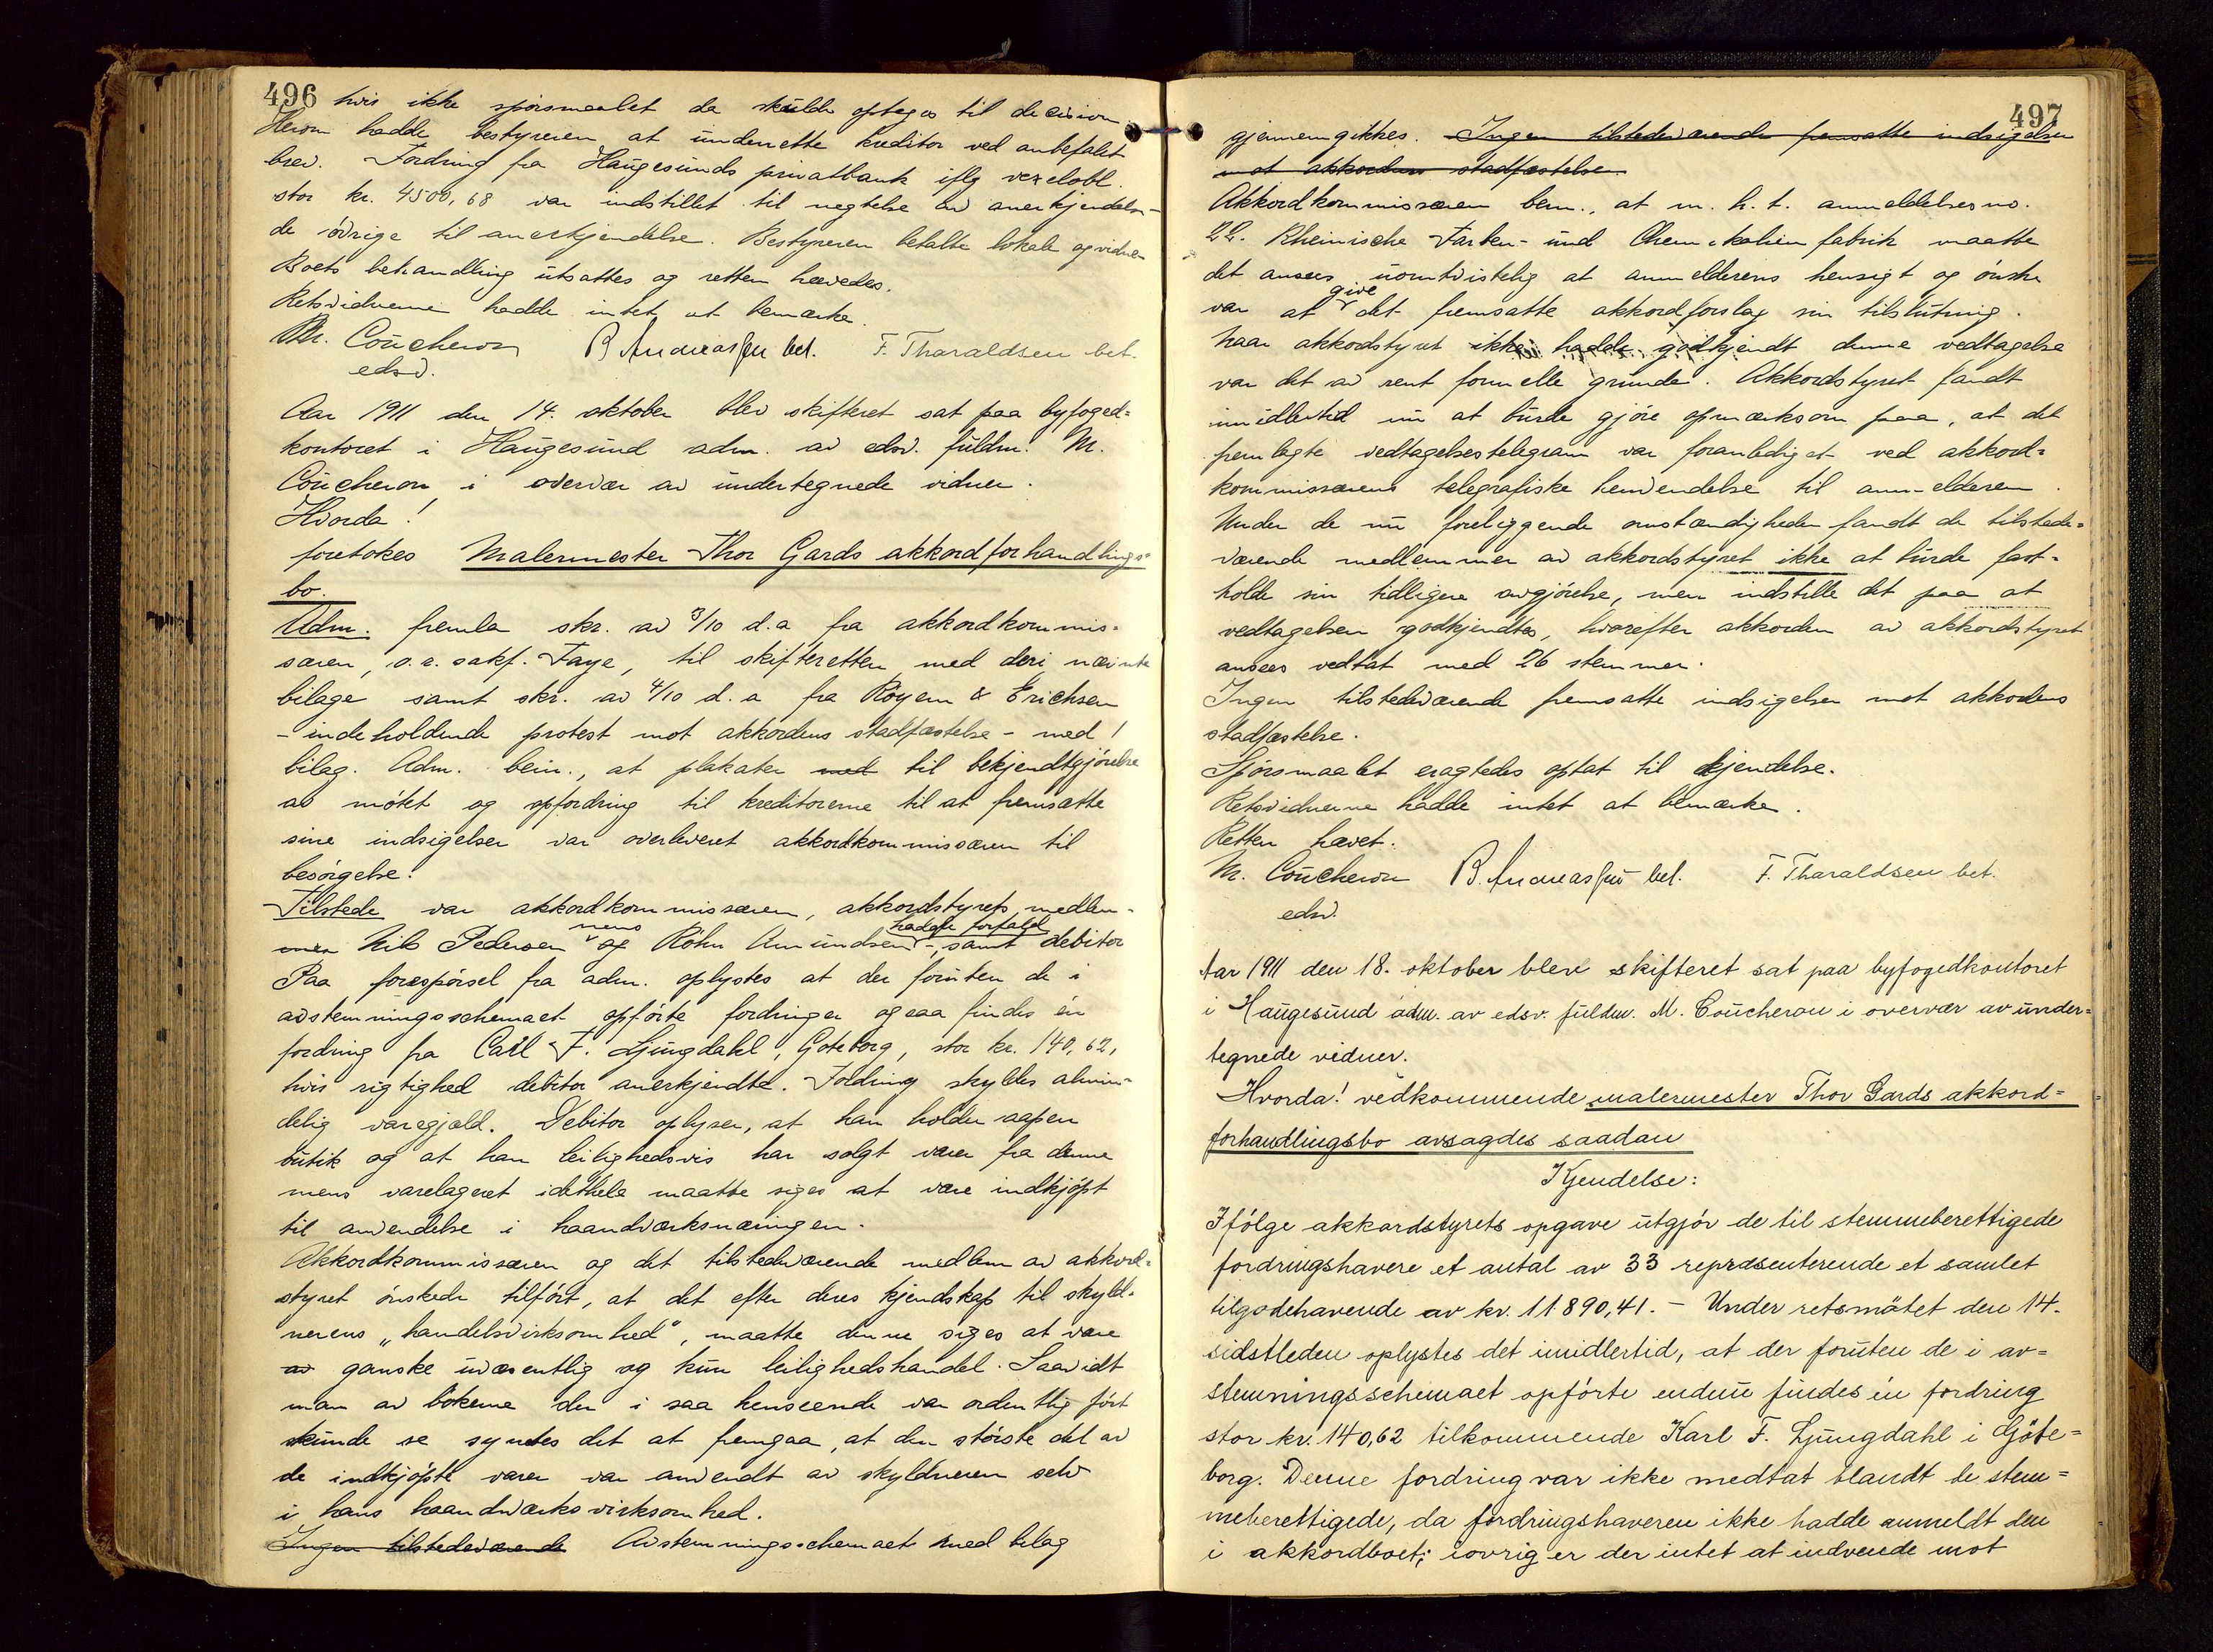 496
hvis ikke spörsmaalet da skulde optages til decision.
Herom hadde bestyreren at underrette kreditor ved anbefalet
brev. Fordring fra Haugesunds privatbank iflg vexelobl.
stor kr. 4500,68 var indstillet til negtelse av anerkjendelse
de övrige til anerkjendelse. Bestyreren betalte lokale og vidner
Boets behandling utsattes og retten hævedes.
Retsvidnerne hadde intet at bemærke.
M. Coucheron B Andreassen bet. F. Tharaldsen bet.
edsv.
Aar 1911 den 14. oktober blev skifteret sat paa byfoged=
kontoret i Haugesund adm. av edsv. fuldm. M.
Coucheron i overvær av undertegnede vidner.
Hvorda!
foretokes Malermester Thor Gards akkordforhandlings=
bo.
Adm. fremla skr. av 3/10 d.a fra akkordkommis-
særen, o.r. sakf. Faye, til skifteretten med deri nævnte
bilage samt skr. av 4/10 d.a fra Royem & Erichsen
- indeholdende protest mot akkordens stadfæstelse - med 1
bilag. Adm. bem., at plakater med til bekjendtgjörelse
av mötet og opfordring til kreditorerne til at fremsætte
sine indsigelser var overleveret akkordkommissæren til
besörgelse.
Tilstede var akkordkommissæren, akkordstyrets medlem-
mer Nils Pedersen mens og Röhr Amundsen hadde forfald -, samt debitor
Paa forespörsel fra adm. oplystes at der foruten de i
avstemningsschemaet opförte fordringer ogsaa findes én
fordring fra Carl F. Ljungdahl, Goteborg, stor kr. 140,62,
hvis rigtighed debitor anerkjendte. Fordring skyldes almin-
delig varegjæld. Debitor oplyser, at han holder aapen
butik og at han leilighedsvis har solgt varer fra denne
mens varelageret idethele maatte siges at være indkjöpt
til anvendelse i haandværksnæringen.
Akkordkommissæren og det tilstedeværende medlem av akkord-
styret önskede tilfört, at det efter deres kjendskap til skyld-
nerens "handelsvirksomhed", maatte denne siges at være
av ganske uvæsentlig og kun leilighedshandel. Saavidt
man av bökerne der i saa henseende var ordentlig fört
kunde se syntes det at fremgaa, at den störste del av
de indkjöpte varer var anvendt av skyldneren selv
i hans haandværksvirksomhed.
Ingen tilstedeværende Avstemningsschemaet med bilag
497
gjennemgikkes. Ingen tilstedeværende fremsatte indsigelser
mot akkordens stadfæstelse.
Akkordkommissæren bem., at m. h. t. anmeldelsesno.
22. Rheinische Farben- und Chemikalien fabrik maatte
det ansees uomtvistelig at anmelderens hensigt og önske
var at give det fremsatte akkordforslag sin tilslutning.
Naar akkordstyret ikke hadde godkjendt denne vedtagelse
var det av rent formelle grunde. Akkordstyret fandt
imidlertid nu at burde gjöre opmærksom paa, at det
fremlagte vedtagelsestelegram var foranlediget ved akkord-
kommissærens telegrafiske henvendelse til anmelderen.
Under de nu foreliggende omstændigheder fandt de tilstede-
værende medlemmer av akkordstyret ikke at burde fast-
holde sin tidligere avgjörelse, men indstille det paa at
vedtagelsen godkjendtes, hvorefter akkorden av akkordstyret
ansees vedtat med 26 stemmer.
Ingen tilstedeværende fremsatte indsigelser mot akkordens
stadfæstelse.
Spörsmaalet eragtedes optat til kjendelse.
Retsvidnerne hadde intet at bemærke.
Retten hævet.
M. Coucheron B. Andreassen bet. F. Tharaldsen bet.
edsv.
Aar 1911 den 18. oktober blev skifteret sat paa byfogedkontoret
i Haugesund adm. av edsv. fuldm. M. Coucheron i overvær av under=
tegnede vidner.
Hvorda! vedkommende malermester Thor Gards akkord=
forhandlingsbo avsagdes saadan
Kjendelse:
Ifölge akkordstyrets opgave utgjör de til stemmeberettigede
fordringshavere et antal av 33 repræsenterende et samlet
tilgodehavende av kr. 11890,41. - Under retsmötet den 14.
sidstleden oplystes det imidlertid, at der foruten de i av=
stemningsschemaet opförte endnu findes én fordring
stor kr. 140,62 tilkommende Karl F. Ljungdahl i Göte=
borg. Denne fordring var ikke medtat blandt de stem=
meberettigede, da fordringshaveren ikke hadde anmeldt den
i akkordboet; iovrig er der intet at indvende mot